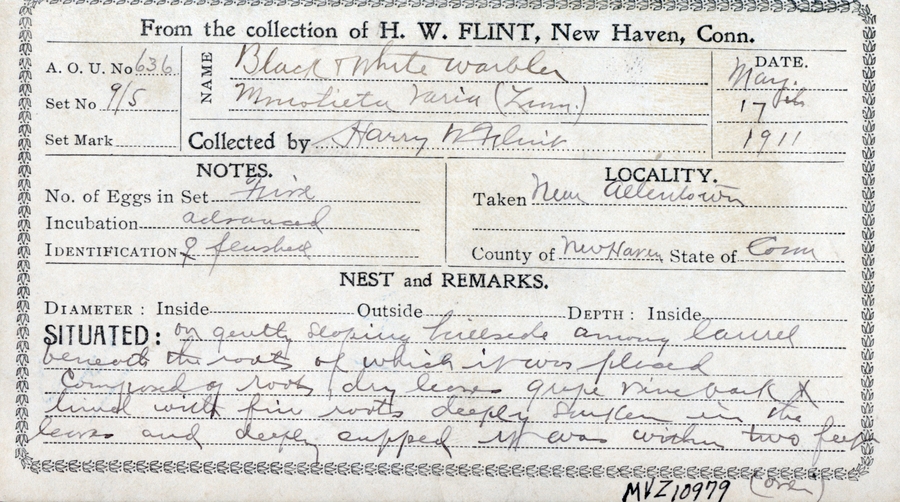 From the collection of H. W. FLINT, New Haven, Conn.
A. O. U. No 636
NAME Black & White Warbler
DATE.
May.
Set No 9/5
Mniotieta Varia (Linn.)
17th
Set Mark
Collected by Harry W Flint
1911
NOTES.
LOCALITY.
No. of Eggs in Set Five
Taken Near Allentown
Incubation advanced
IDENTIFICATION ♀ flushed
County of New Haven State of Conn
NEST and REMARKS.
DIAMETER: Inside Outside DEPTH: Inside
SITUATED: on gently sloping hillside among laurel
beneath the roots of which it was placed
Composed of roots, dry leaves grape vine bark &
lined with fine roots deeply sunken in the
leaves and deeply cupped it was within two feet
MVZ 10979 (over)